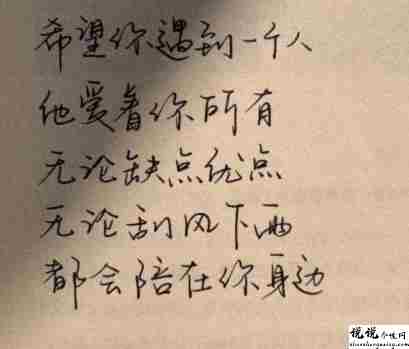 希望你遇到一个人
他爱着你所有
无论缺点优点
无论刮风下雨
都会陪在你身边
说说个性网